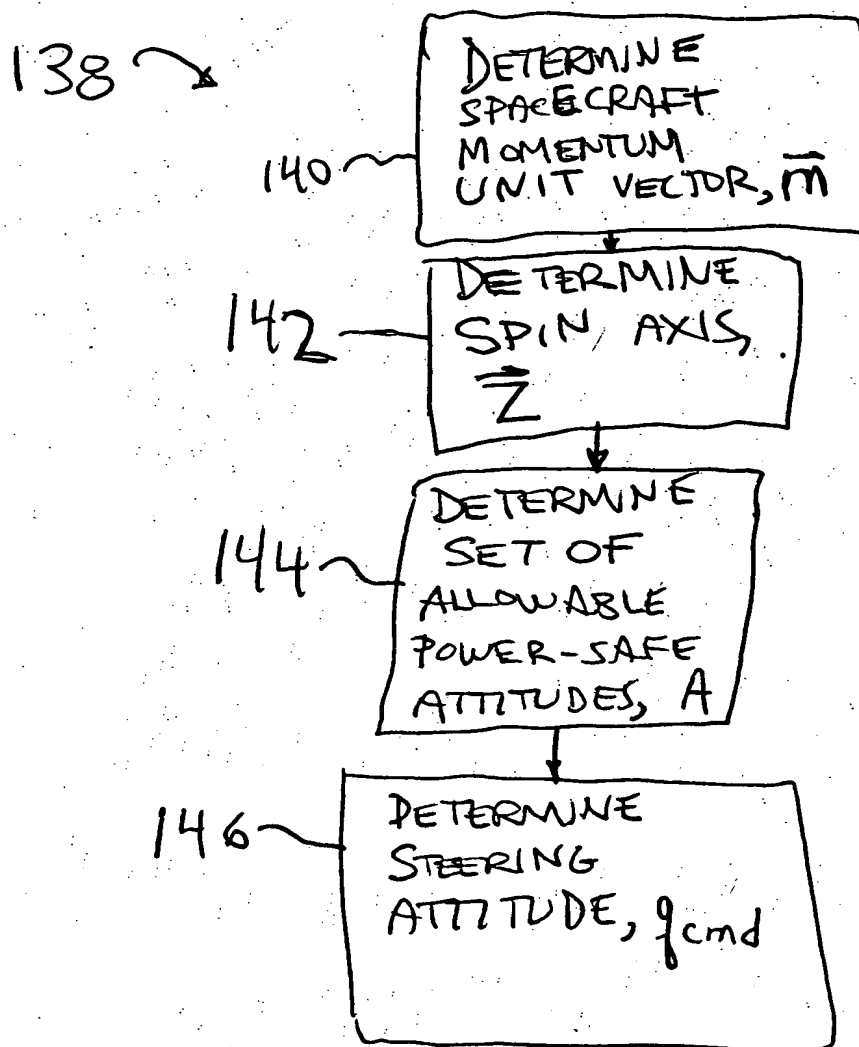 138
DETERMINE
SPACECRAFT
MOMENTUM
140
UNIT VECTOR, m⃗
DETERMINE
142
SPIN AXIS,
Z⃗
DETERMINE
144
SET OF
ALLOWABLE
POWER-SAFE
ATTITUDES, A
DETERMINE
146
STEERING
ATTITUDE, qcmd